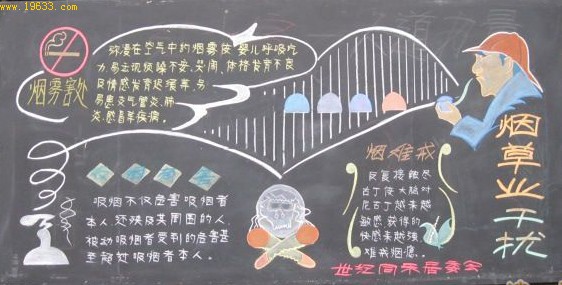 www.19633.com
弥漫在空气中的烟雾使婴儿呼吸吃
力,易出现烦噪不安,哭闹、体格发育不良
及情感发育迟缓等,易
易患支气管炎、肺
炎、感冒等疾病。
烟雾害处
吸烟不仅危害吸烟者
本人,还殃及其周围的人,
被动吸烟者受到的危害甚
至超过吸烟者本人。
烟难戒
反复接触尼
古丁使大脑对
尼古丁越来越
敏感获得的
快感来越强,
难戒烟瘾。
烟草业干扰
居委会